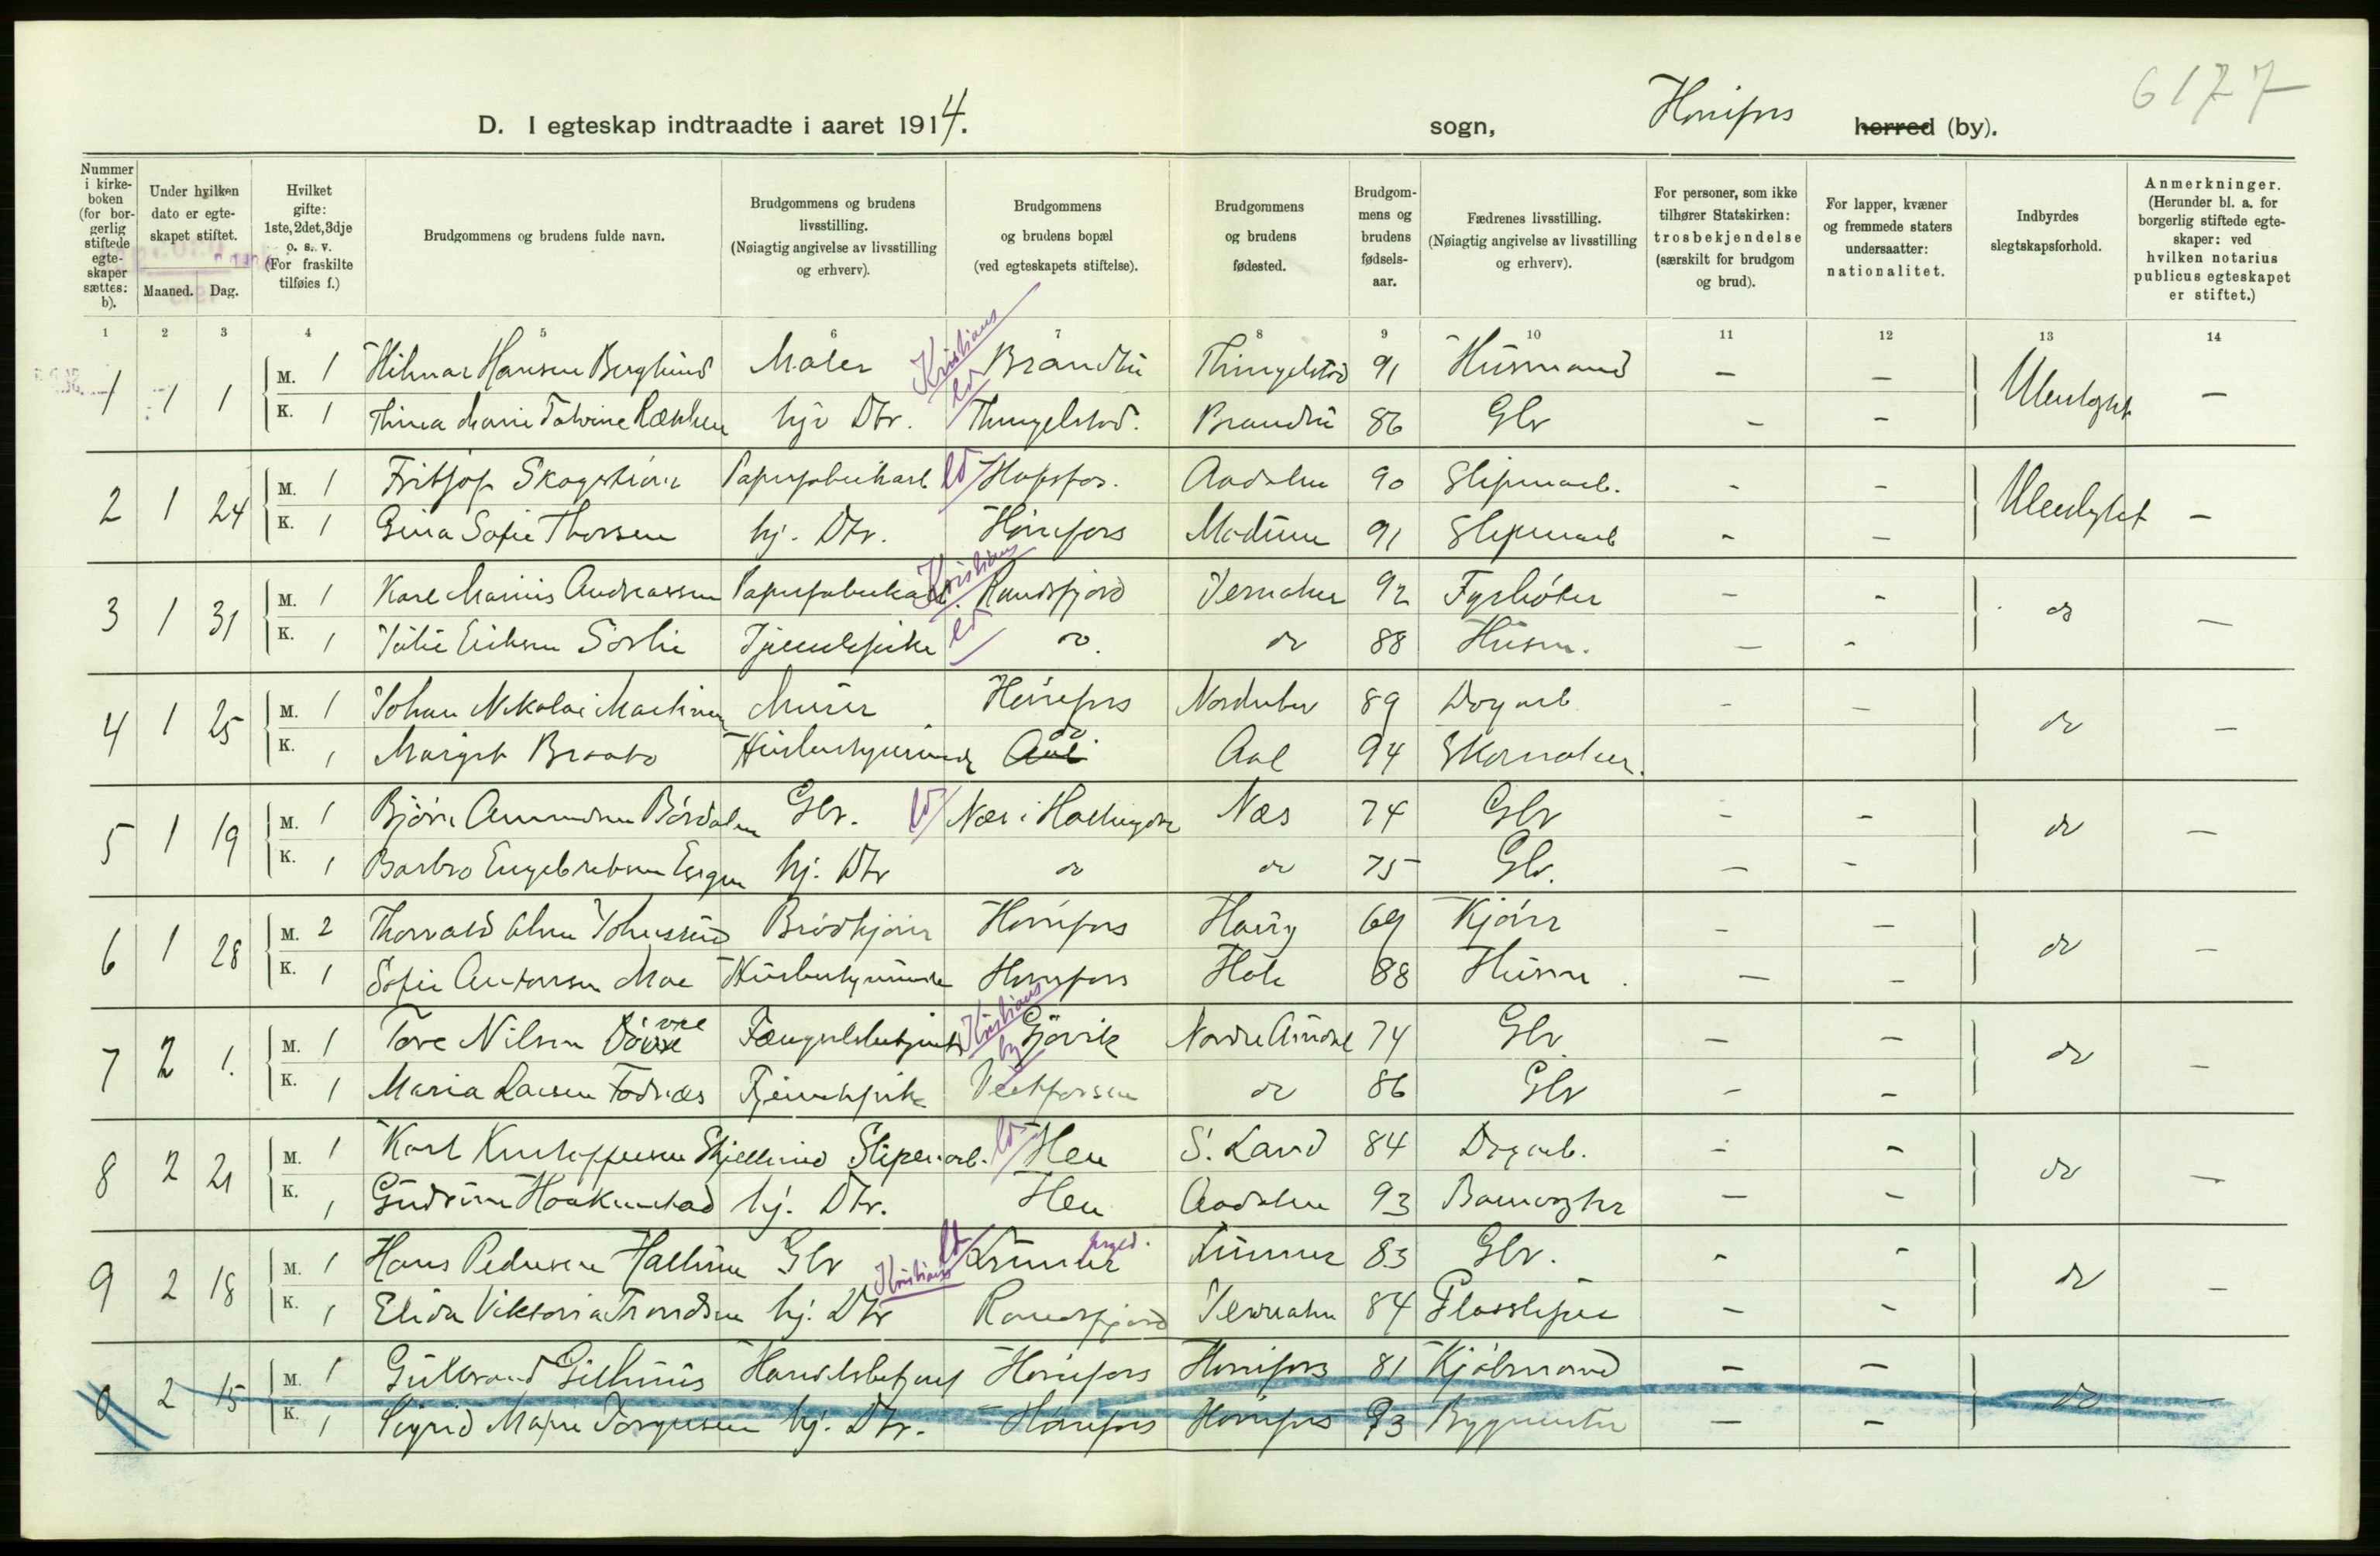 6177
D. I egteskap indtraadte i aaret 1914.
sogn, Hønefos herred (by).
Nummer i kirke-boken (for bor-gerlig stiftede egte-skaper sættes: b).
Under hvilken dato er egte-skapet stiftet.
Maaned. Dag.
Hvilket gifte: 1ste, 2det, 3dje o. s. v. (For fraskilte tilføies f.)
Brudgommens og brudens fulde navn.
Brudgommens og brudens livsstilling. (Nøiagtig angivelse av livsstilling og erhverv).
Brudgommens og brudens bopæl (ved egteskapets stiftelse).
Brudgommens og brudens fødested.
Brudgom-mens og brudens fødsels-aar.
Fædrenes livsstilling. (Nøiagtig angivelse av livsstilling og erhverv).
For personer, som ikke tilhører Statskirken: trosbekjendelse (særskilt for brudgom og brud).
For lapper, kvæner og fremmede staters undersaatter: nationalitet.
Indbyrdes slegtskapsforhold.
Anmerkninger. (Herunder bl. a. for borgerlig stiftede egte-skaper: ved hvilken notarius publicus egteskapet er stiftet.)
1 2 3 4 5 6 7 8 9 10 11 12 13 14
1 1 1 M. 1 Hilmar Hansen Berglund Maler Kristians ld Brandbu Thingelstad 91 Husmand – – Ubeslegtet –
K. 1 Thina Marie hjv Dtr. Thingelstad. Brandbu 86 Gbr – –
2 1 24 M. 1 Fritjof Skogstrøm Papirfabrikarb ld Hofsfos. Aadalen 90 Slipenarb. - - Ubeslegtet –
K. 1 Gina Sofie Thorsen hj. Dtr. Hønefos Modum 91 Slipenarb - –
3 1 31 M. 1 Karl Marius Andreassen Papirfabrikarb. Kristians ld Randsfjord Jevnaker 92 Fyrbøter – - do –
K. 1 Julie Eriksen Sørlie Tjenestepike do. do 88 Husm. – -
4 1 25 M. 1 Johan Nikolai Martinsen Murer Hønefos 89 Dagarb - – do –
K. 1 Margit Braato Husbestyrerinde Aal do Aal 94 Skomaker.
5 1 19 M. 1 Bjørn Amundsen Gbr. ld Nes i Hallingdal Næs 74 Gbr - - do –
K. 1 Barbro Engebretsen hj. Dtr do do 75 Gbr. – -
6 1 28 M. 2 Thorvald Brødkjører Hønefos Haug 69 Kjører – – do –
K. 1 Sofie Antonsen Moe Husbestyrerinde Hønefos Hole 88 Husm. – –
7 2 1. M. 1 Tore Nilsen Kristians by Gjøvik Nordre Aurdal 74 Gbr – – do –
K. 1 Maria Larsen Fodnæs Tjenestepike do 86 Gbr - –
8 2 21 M. 1 Karl Kristoffersen Skjellerud Sliperiarb. ld Hen S. Land 84 Dagarb. - - do –
K. 1 Gudrun Haakenstad hj. Dtr. Hen Aadalen 93 Banevogter – –
9 2 18 M. 1 Hans Pedersen Hallum Gbr ld Lunner prgld. Lunner 83 Gbr. - - do –
K. 1 Elida Viktoria Trondsen hj. Dtr Kristians Randsfjord Jevnaker 84 – -
0 2 15 M. 1 Gulbrand Gillhuus Handelsbetjent Hønefos Hønefos 81 Kjøbmand – – do –
K. 1 Sigrid Marie Jørgensen hj. Dtr. Hønefos Hønefos 93 Bygmester – –